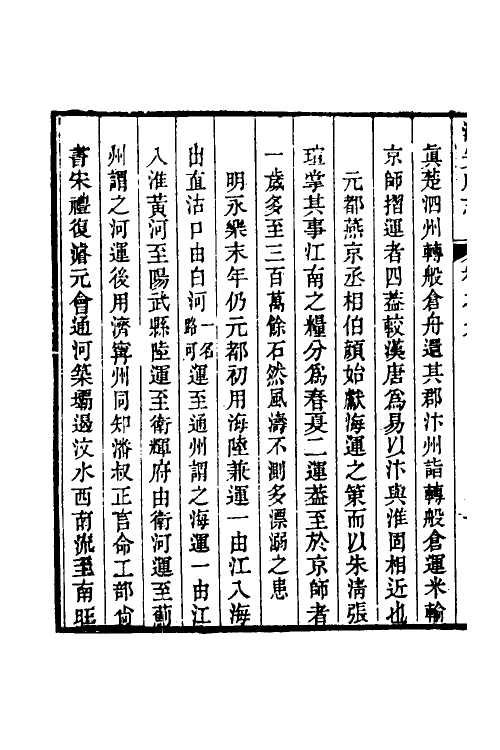 真楚泗州轉般倉舟還其郡汴州詣轉般倉運米輸
京師摺運者四葢較漢唐爲易以汴與淮固相近也
元都燕京丞相伯顏始獻海運之策而以朱清張
瑄掌其事江南之糧分爲春夏二運葢至於京師者
一歲多至三百萬餘石然風濤不測多漂溺之患
明永樂末年仍元都初用海陸兼運一由江入海
出直沽口由白河一名潞河運至通州謂之海運一由江
入淮黃河至陽武縣陸運至衛輝府由衛河運至薊
州謂之河運後用濟寧州同知潘叔正言命工部尙
書宋禮復濬元會通河築壩遏汶水西南流至南旺